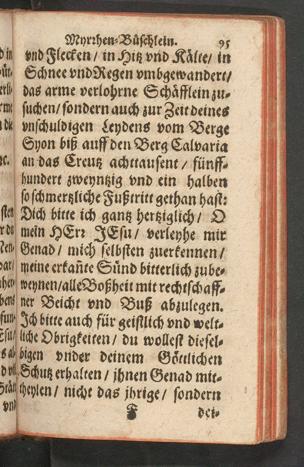 Myrrhen-Büschlein. 95
vnd Flecken / in Hitz vnd Kälte / in
Schnee vnd Regen vmbgewandert /
das arme verlohrne Schäfflein zu-
suchen / sondern auch zur Zeit deines
vnschuldigen Leydens vom Berge
Syon biß auff den Berg Calvaria
an das Creutz achttausent / fünff-
hundert zweyntzig vnd ein halben
so schmertzliche Fußtritt gethan hast:
Dich bitte ich gantz hertziglich / O
mein HErr JEsu / verleyhe mir
Genad / mich selbsten zuerkennen /
meine erkañte Sünd bitterlich zube-
weynen / alle Boßheit mit rechtschaff-
ner Beicht vnd Buß abzulegen.
Ich bitte auch für geistlich vnd welt-
liche Obrigkeiten / du wollest diesel-
bigen vnder deinem Göttlichen
Schutz erhalten / jhnen Genad mit-
theylen / nicht das jhrige / sondern
F dei-